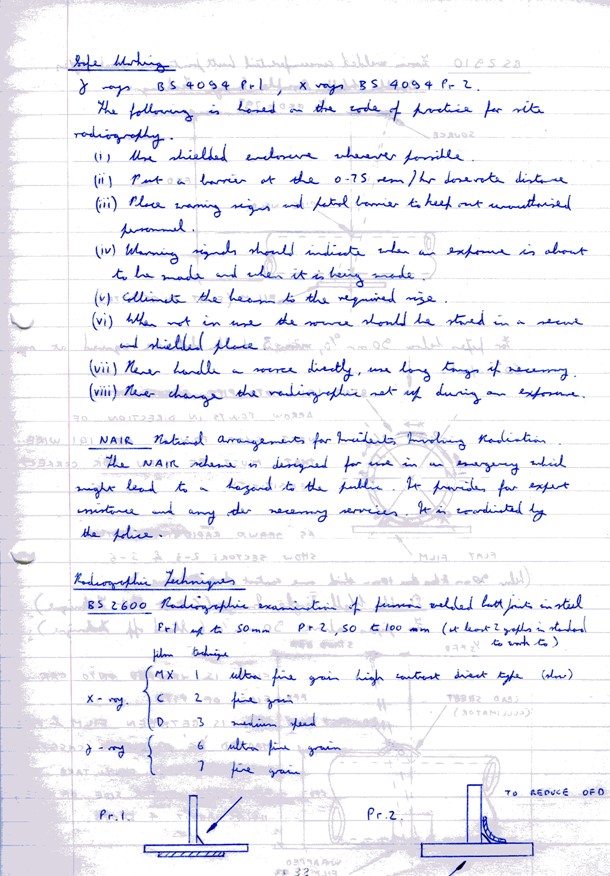 Safe Working
γ rays BS 4094 Pr 1, X rays BS 4094 Pr 2.
The following is based on the code of practice for site
radiography.
(i) Use shielded enclosure wherever possible.
(ii) Put a barrier at the 0.75 rem/hr doserate distance
(iii) Place warning signs and patrol barrier to keep out unauthorised
personnel.
(iv) Warning signals should indicate when an exposure is about
to be made and when it is being made.
(v) Collimate the beam to the required size.
(vi) When not in use the source should be stored in a secure
and shielded place
(vii) Never handle a source directly, use long tongs if necessary.
(viii) Never change the radiographic set up during an exposure.
NAIR National Arrangements for Incidents Involving Radiation.
The NAIR scheme is designed for use in an emergency which
might lead to a hazard to the public. It provides for expert
assistance and any other necessary services. It is coordinated by
the police.
Radiographic Techniques
BS 2600 Radiographic examination of fusion welded butt joints in steel
Pr 1 up to 50mm Pr 2, 50 to 100 mm (at least 2 in standard
to work to)
film technique
X-ray. MX 1 ultra fine grain high contrast direct type (slow)
C 2 fine grain
D. 3 medium speed
γ-ray 6 ultra fine grain
7 fine grain
Pr. 1. Pr. 2. TO REDUCE OFD